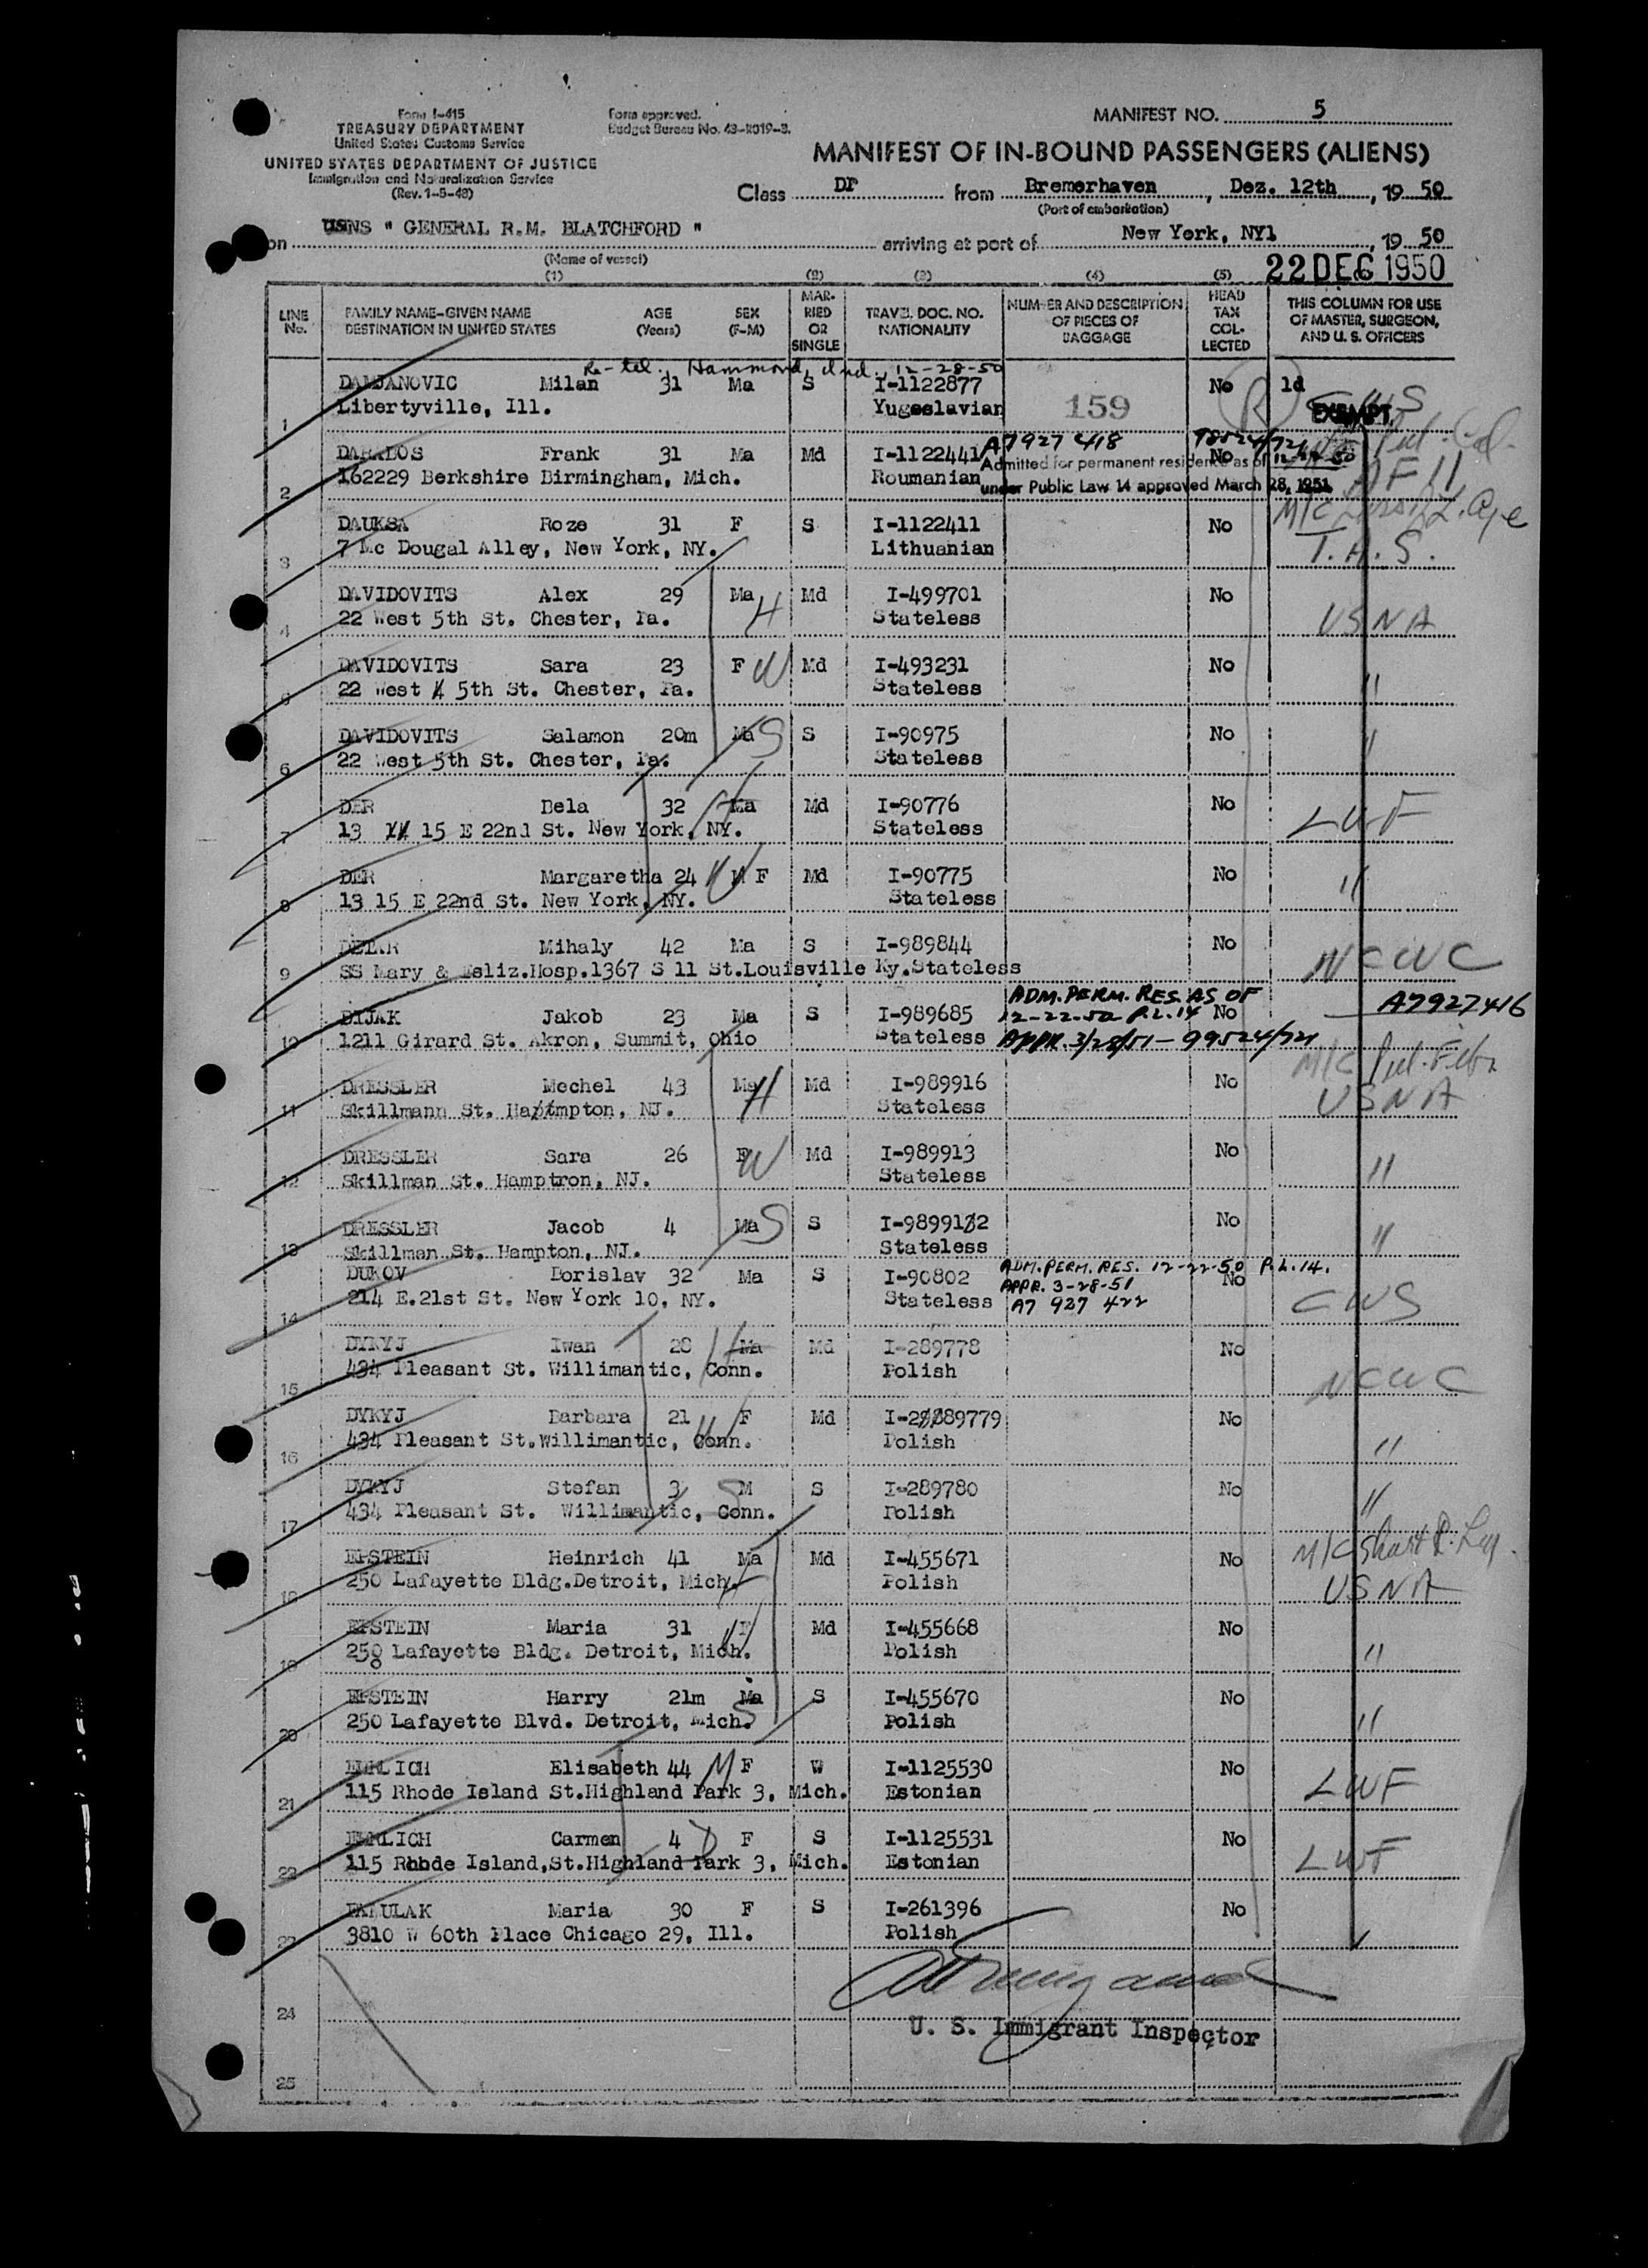 Form I-415
TREASURY DEPARTMENT
United States Customs Service
UNITED STATES DEPARTMENT OF JUSTICE
Immigration and Naturalization Service
(Rev. 1-5-48)
Form approved.
Budget Bureau No. 43-R019-3.
MANIFEST NO. 5
MANIFEST OF IN-BOUND PASSENGERS (ALIENS)
Class DP from Bremerhaven, Dez. 12th, 19 50
(Port of embarkation)
on USNS " GENERAL R.M. BLATCHFORD " arriving at port of New York, NY1, 19 50
(Name of vessel)
22 DEC 1950
(1) (2) (3) (4) (5)
LINE No. FAMILY NAME-GIVEN NAME DESTINATION IN UNITED STATES AGE (Years) SEX (F-M) MARRIED OR SINGLE TRAVEL DOC. NO. NATIONALITY NUMBER AND DESCRIPTION OF PIECES OF BAGGAGE HEAD TAX COLLECTED THIS COLUMN FOR USE OF MASTER, SURGEON, AND U. S. OFFICERS
Re-tel., Hammond, Ind., 12-28-50
DAMJANOVIC Milan 31 Ma S I-1122877 No 1d CWS
1 Libertyville, Ill. Yugoslavian 159 EXEMPT
A7 927 418
DARABOS Frank 31 Ma Md I-1122441 No
Admitted for permanent residence as of
2 162229 Berkshire Birmingham, Mich. Roumanian under Public Law 14 approved March 28, 1951
DAUKSA Roze 31 F S I-1122411 No M/C
3 7 Mc Dougal Alley, New York, NY. Lithuanian I.H.S.
DAVIDOVITS Alex 29 Ma H Md I-499701 No
4 22 West 5th St. Chester, Pa. Stateless USNA
DAVIDOVITS Sara 23 F W Md I-493231 No
5 22 West 5th St. Chester, Pa. Stateless "
DAVIDOVITS Salamon 20m Ma S S I-90975 No
6 22 West 5th St. Chester, Pa. Stateless "
DER Bela 32 H Ma Md I-90776 No
7 13 15 E 22nd St. New York, NY. Stateless LWF
DER Margaretha 24 W F Md I-90775 No
8 13 15 E 22nd St. New York, NY. Stateless "
Mihaly 42 Ma S I-989844 No
9 SS Mary & Eliz.Hosp.1367 S 11 St.Louisville Ky.Stateless NCWC
ADM. PERM. RES. AS OF
BIJAK Jakob 23 Ma S I-989685 12-22-50 P.L. 14 No A7927416
10 1211 Girard St. Akron, Summit, Ohio Stateless APPR. 3/28/51 - 99524/721
DRESSLER Mechel 43 Ma H Md I-989916 No M/C
11 Skillmann St. Hampton, NJ. Stateless USNA
DRESSLER Sara 26 F W Md I-989913 No
12 Skillman St. Hamptron, NJ. Stateless "
DRESSLER Jacob 4 Ma S S I-9899132 No
13 Skillman St. Hampton, NJ. Stateless "
ADM. PERM. RES. 12-22-50 P.L. 14.
DUKOV Borislav 32 Ma S I-90802 APPR. 3-28-51 No
14 214 E.21st St. New York 10, NY. Stateless A7 927 422 CWS
DYKYJ Iwan 28 H Ma Md I-289778 No
15 434 Pleasant St. Willimantic, Conn. Polish NCWC
DYKYJ Barbara 21 W F Md I-289779 No
16 434 Pleasant St.Willimantic, Conn. Polish "
DYKYJ Stefan 3 S M S I-289780 No
17 434 Pleasant St. Willimantic, Conn. Polish "
EPSTEIN Heinrich 41 Ma Md I-455671 No M/C
18 250 Lafayette Bldg.Detroit, Mich. Polish USNA
EPSTEIN Maria 31 W F Md I-455668 No
19 250 Lafayette Bldg. Detroit, Mich. Polish "
EPSTEIN Harry 21m Ma S S I-455670 No
20 250 Lafayette Blvd. Detroit, Mich. Polish "
EHRLICH Elisabeth 44 M F W I-1125530 No
21 115 Rhode Island St.Highland Park 3, Mich. Estonian LWF
EHRLICH Carmen 4 D F S I-1125531 No
22 115 Rhode Island,St.Highland Park 3, Mich. Estonian LWF
Maria 30 F S I-261396 No
23 3810 W 60th Place Chicago 29, Ill. Polish
24
U. S. Immigrant Inspector
25